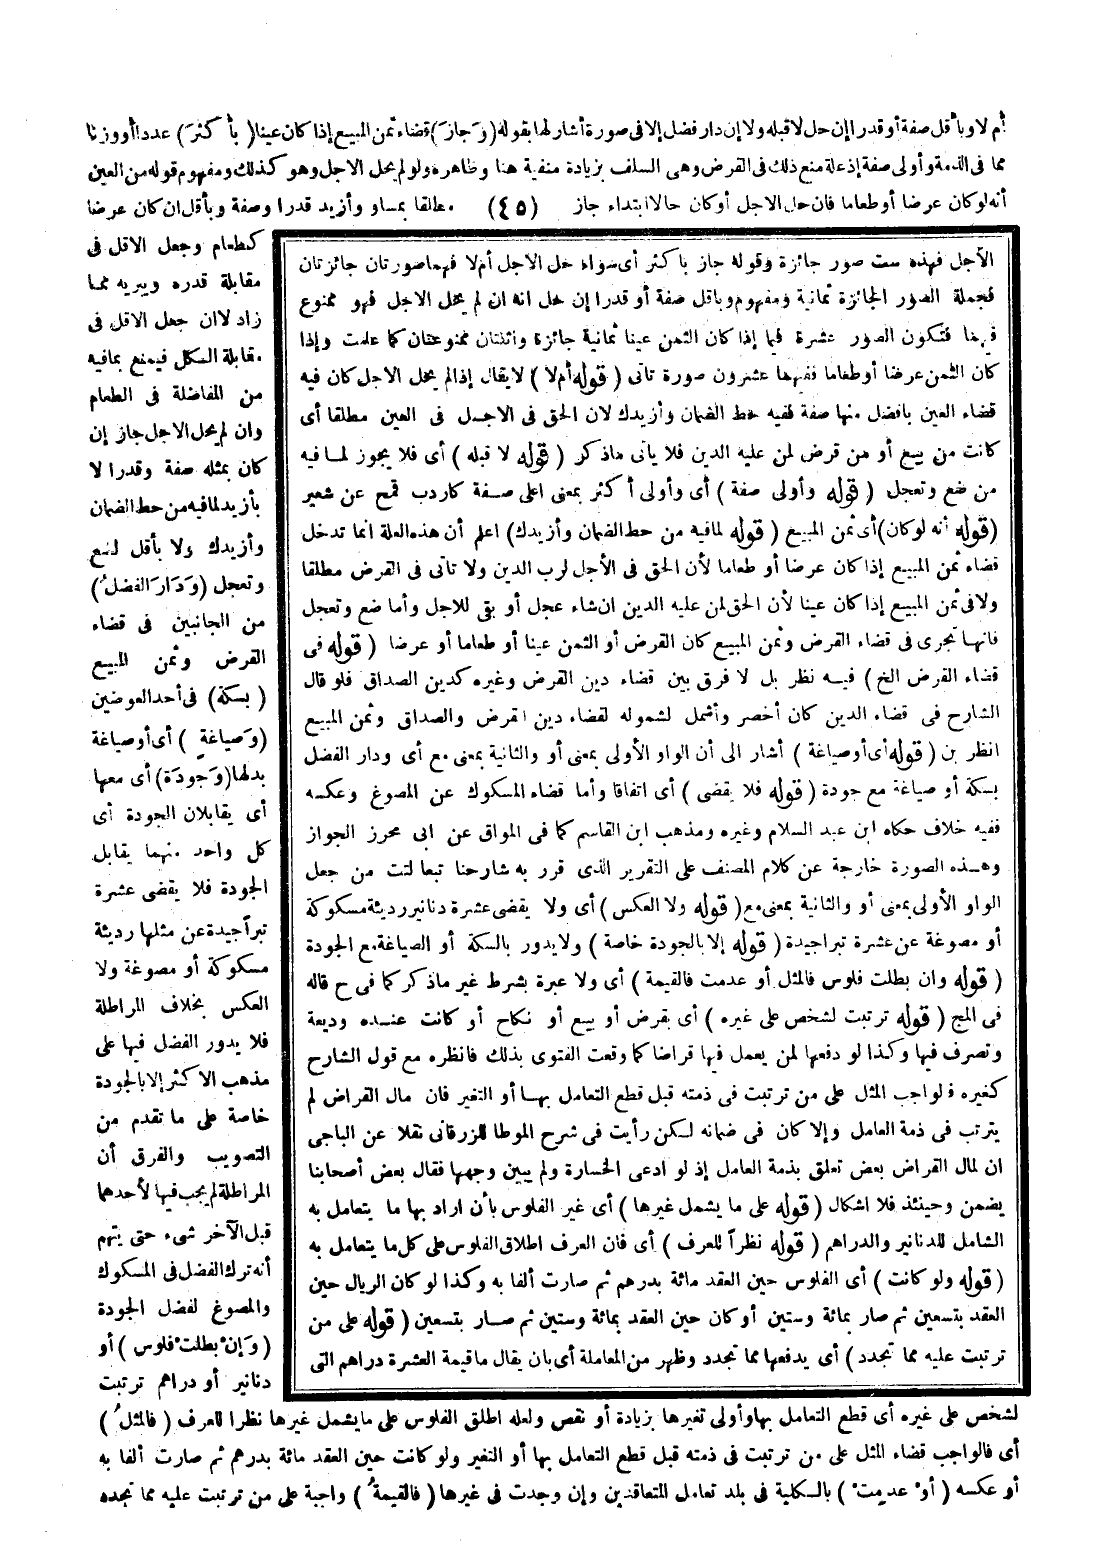 أم لا وبأقل صفة أو قدرا إن حل لا قبله ولا إن دار فضل إلا فى صورة أشار لها بقوله (وَجازَ) قضاء ثمن المبيع إذا كان عينا (بأكثرَ) عددا أو وزنا
مما فى الذمة وأولى صفة إذ علة منع ذلك فى القرض وهى السلف بزيادة منفية هنا وظاهره ولو لم يحل الاجل وهو كذلك ومفهوم قوله من العين
أنه لو كان عرضا أو طعاما فان حل الاجل أو كان حالا ابتداء جاز (٤٥) مطلقا بمساو وأزيد قدرا وصفة وبأقل ان كان عرضا
كطعام وجعل الاقل فى
مقابلة قدره ويبريه مما
زاد لا ان جعل الاقل فى
مقابلة الكل فيمنع بمافيه
من المفاضلة فى الطعام
وان لم يحل الاجل جاز إن
كان بمثله صفة وقدرا لا
بأزيد لمافيه من حط الضمان
وأزيدك ولا بأقل لضع
وتعجل (وَدَارَ الفضلُ)
من الجانبين فى قضاء
القرض وثمن المبيع
(بسكة) فى أحد العوضين
(وَصياغةٍ) أى أو صياغة
بدلها (وَجودَة) أى معها
أى يقابلان الجودة أى
كل واحد منهما يقابل
الجودة فلا يقضى عشرة
تبراً جيدة عن مثلها رديئة
مسكوكة أو مصوغة ولا
العكس بخلاف المراطلة
فلا يدور الفضل فيها على
مذهب الاكثر إلا بالجودة
خاصة على ما تقدم من
التصويب والفرق أن
المراطلة لم يجب فيها لأحدهما
قبل الآخر شىء حتى يتهم
أنه ترك الفضل فى المسكوك
والمصوغ لفضل الجودة
(وَإنْ بطلتْ فلوس) أو
دنانير أو دراهم ترتبت
لشخص على غيره أى قطع التعامل بها وأولى تغيرها بزيادة أو نقص ولعله اطلق الفلوس على ما يشمل غيرها نظرا للعرف (فالمثلُ)
أى فالواجب قضاء المثل على من ترتبت فى ذمته قبل قطع التعامل بها أو التغير ولو كانت حين العقد مائة بدرهم ثم صارت ألفا به
أو عكسه (أوْ عدمتْ) بالكلية فى بلد تعامل المتعاقدين وإن وجدت فى غيرها (فالقيمةُ) واجبة على من ترتبت عليه مما تجدد
الآجل فهذه ست صور جائزة وقوله جاز بأكثر أى سواء حل الاجل أم لا فهما صورتان جائزتان
فجملة الصور الجائزة ثمانية ومفهوم وباقل صفة أو قدرا إن حل انه ان لم يحل الاجل فهو ممنوع
فيهما فتكون الصور عشرة فيما إذا كان الثمن عينا ثمانية جائزة واثنتان ممنوعتان كما علمت وإذا
كان الثمن عرضا أو طعاما ففيها عشرون صورة تأتى (قوله أم لا) لا يقال إذا لم يحل الاجل كان فيه
قضاء العين بافضل منها صفة ففيه حط الضمان وأزيدك لان الحق فى الاجل فى العين مطلقا أى
كانت من بيع أو من قرض لمن عليه الدين فلا يأتى ماذكر (قوله لا قبله) أى فلا يجوز لما فيه
من ضع وتعجل (قوله وأولى صفة) أى وأولى أكثر بمعنى اعلى صفة كاردب قمح عن شعير
(قوله أنه لو كان) أى ثمن المبيع (قوله لمافيه من حط الضمان وأزيدك) اعلم أن هذه العلة انما تدخل
قضاء ثمن المبيع إذا كان عرضا أو طعاما لأن الحق فى الأجل لرب الدين ولا تأتى فى القرض مطلقا
ولا فى ثمن المبيع إذا كان عينا لأن الحق لمن عليه الدين ان شاء عجل أو بقى للاجل وأما ضع وتعجل
فانها تجرى فى قضاء القرض وثمن المبيع كان القرض أو الثمن عينا أو طعاما أو عرضا (قوله فى
قضاء القرض الخ) فيه نظر بل لا فرق بين قضاء دين القرض وغيره كدين الصداق فلو قال
الشارح فى قضاء الدين كان أخصر وأشمل لشموله لقضاء دين القرض والصداق وثمن المبيع
انظر بن (قوله أى أو صياغة) أشار الى أن الواو الأولى بمعنى أو والثانية بمعنى مع أى ودار الفضل
بسكة أو صياغة مع جودة (قوله فلا يقضى) أى اتفاقا وأما قضاء المسكوك عن المصوغ وعكسه
ففيه خلاف حكاه ابن عبد السلام وغيره ومذهب ابن القاسم كما فى المواق عن ابى محرز الجواز
وهذه الصورة خارجة عن كلام المصنف على التقرير الذى قرر به شارحنا تبعا لتت من جعل
الواو الأولى بمعنى أو والثانية بمعنى مع (قوله ولا العكس) أى ولا يقضى عشرة دنانير رديئة مسكوكة
أو مصوغة عن عشرة تبرا جيدة (قوله إلا بالجودة خاصة) ولا يدور بالسكة أو الصياغة مع الجودة
(قوله وان بطلت فلوس فالمثل أو عدمت فالقيمة) أى ولا عبرة بشرط غير ماذكر كما فى ح قاله
فى المج (قوله ترتبت لشخص على غيره) أى بقرض أو بيع أو نكاح أو كانت عنده وديعة
وتصرف فيها وكذا لو دفعها لمن يعمل فيها قراضا كما وقعت الفتوى بذلك فانظره مع قول الشارح
كغيره فالواجب المثل على من ترتبت فى ذمته قبل قطع التعامل بها أو التغير فان مال القراض لم
يترتب فى ذمة العامل وإلا كان فى ضمانه لكن رأيت فى شرح الموطا للزرقانى نقلا عن الباجى
ان لمال القراض بعض تعلق بذمة العامل إذ لو ادعى الخسارة ولم يبين وجهها فقال بعض أصحابنا
يضمن وحينئذ فلا اشكال (قوله على ما يشمل غيرها) أى غير الفلوس بأن اراد بها ما يتعامل به
الشامل للدنانير والدراهم (قوله نظراً للعرف) أى فان العرف اطلاق الفلوس على كل ما يتعامل به
(قوله ولو كانت) أى الفلوس حين العقد مائة بدرهم ثم صارت ألفا به وكذا لو كان الريال حين
العقد بتسعين ثم صار بمائة وستين أو كان حين العقد بمائة وستين ثم صار بتسعين (قوله على من
ترتبت عليه مما تجدد) أى يدفعها مما تجدد وظهر من المعاملة أى بان يقال ما قيمة العشرة دراهم التى